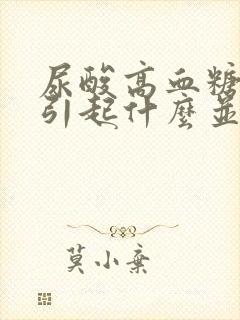 尿酸高血糖
引起什麼並
莫小棄